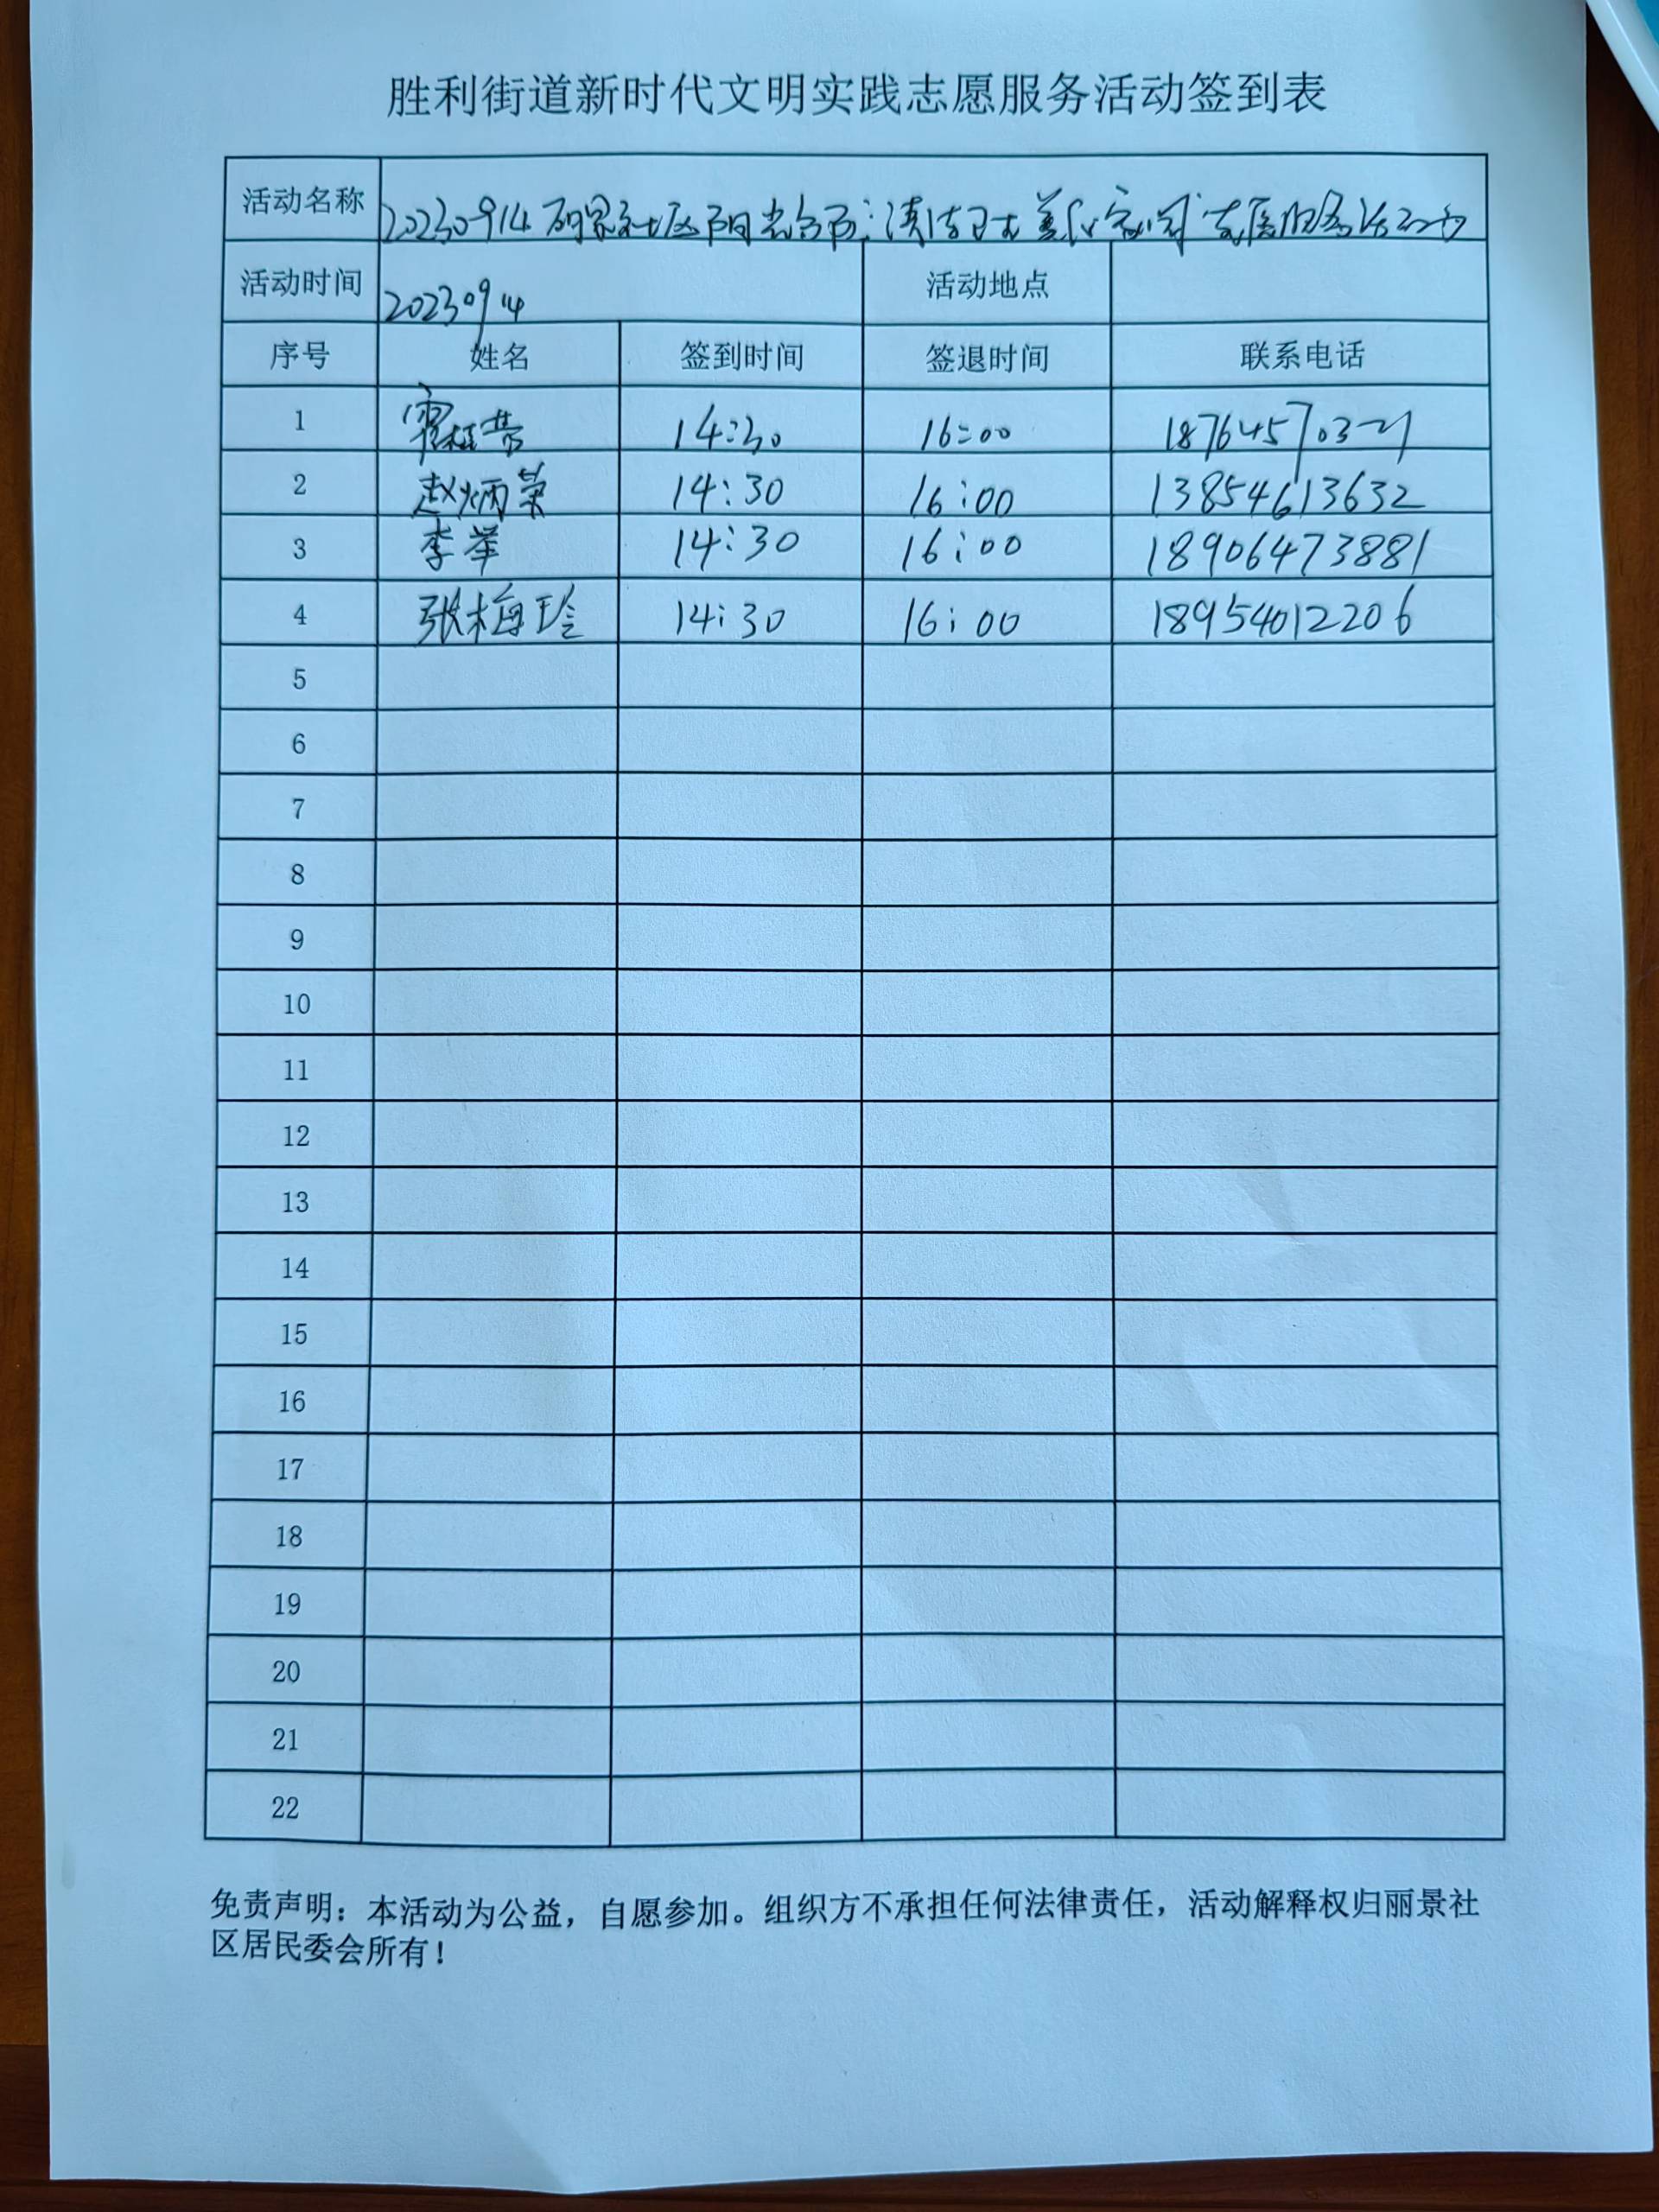 胜利街道新时代文明实践志愿服务活动签到表
活动名称 20230914丽景社区阳光 清洁 美化家园 志愿服务活动
活动时间 20230914 活动地点
序号 姓名 签到时间 签退时间 联系电话
1 14:30 16:00 18764570321
2 赵炳荣 14:30 16:00 13854613632
3 李举 14:30 16:00 18906473881
4 张梅玲 14:30 16:00 18954012206
5
6
7
8
9
10
11
12
13
14
15
16
17
18
19
20
21
22
免责声明：本活动为公益，自愿参加。组织方不承担任何法律责任，活动解释权归丽景社
区居民委会所有！